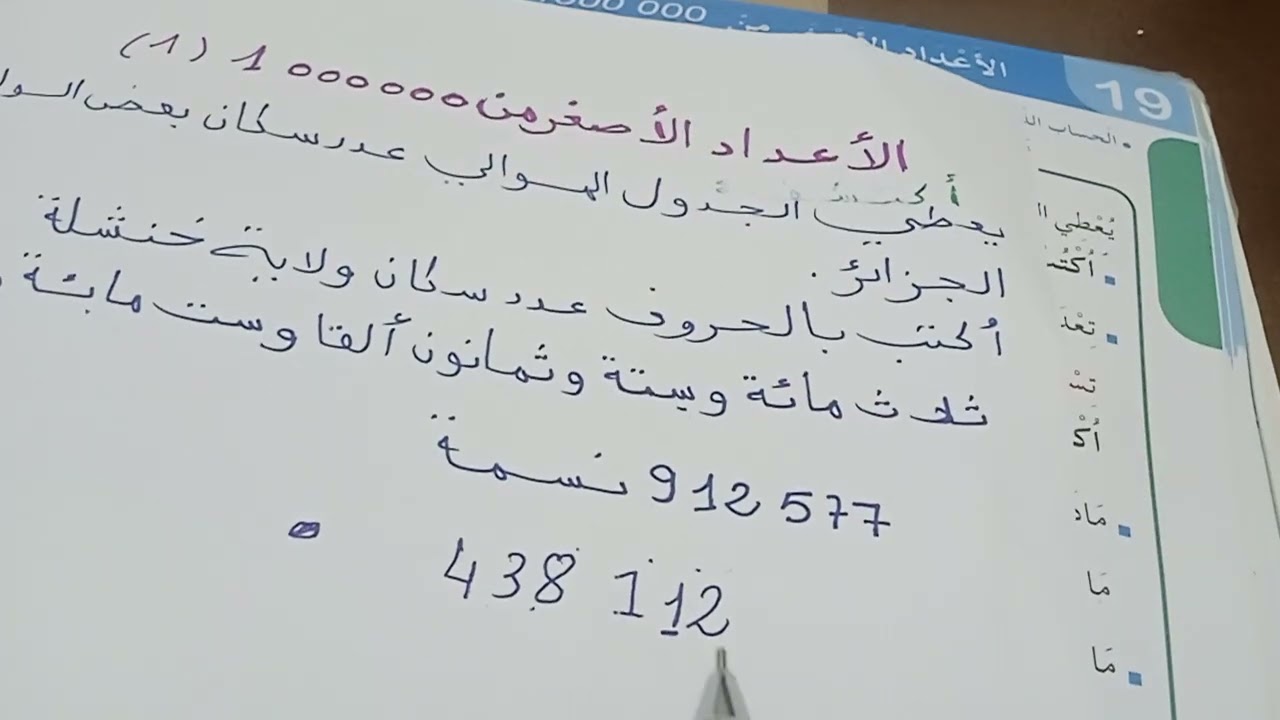 19
الأعداد الأصغر من 000 000 1 (1)
أكتشف
يعطي الجدول الموالي عدد سكان بعض
الجزائر.
أكتب بالحروف عدد سكان ولاية خنشلة
ثلاث مائة وستة وثمانون ألفا وست مائة
912 577 نسمة
438 112
• الحساب
يُعْطِي
■ أُكْتُ
■ تِعْدَ
تسْ
أُكْ
■ مَاذ
مَا
■ مَا